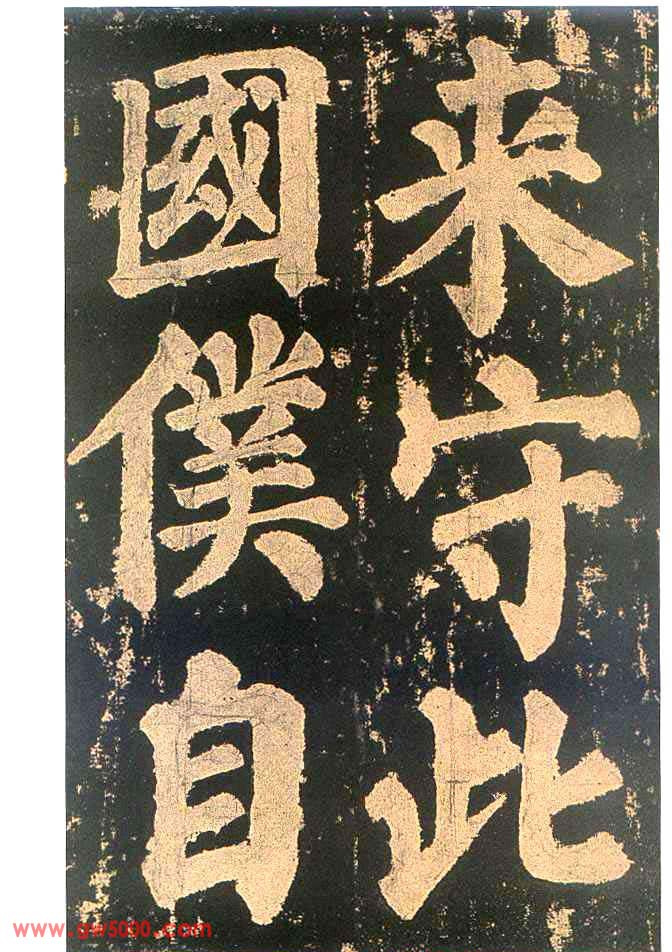 来守此
國僕自
www.gw5000.com